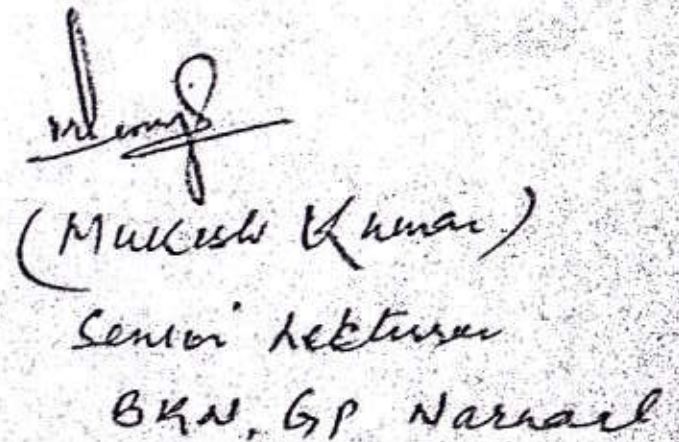 (Mukesh Kumar)
Senior Lekturer
BKN, GP Narnaul